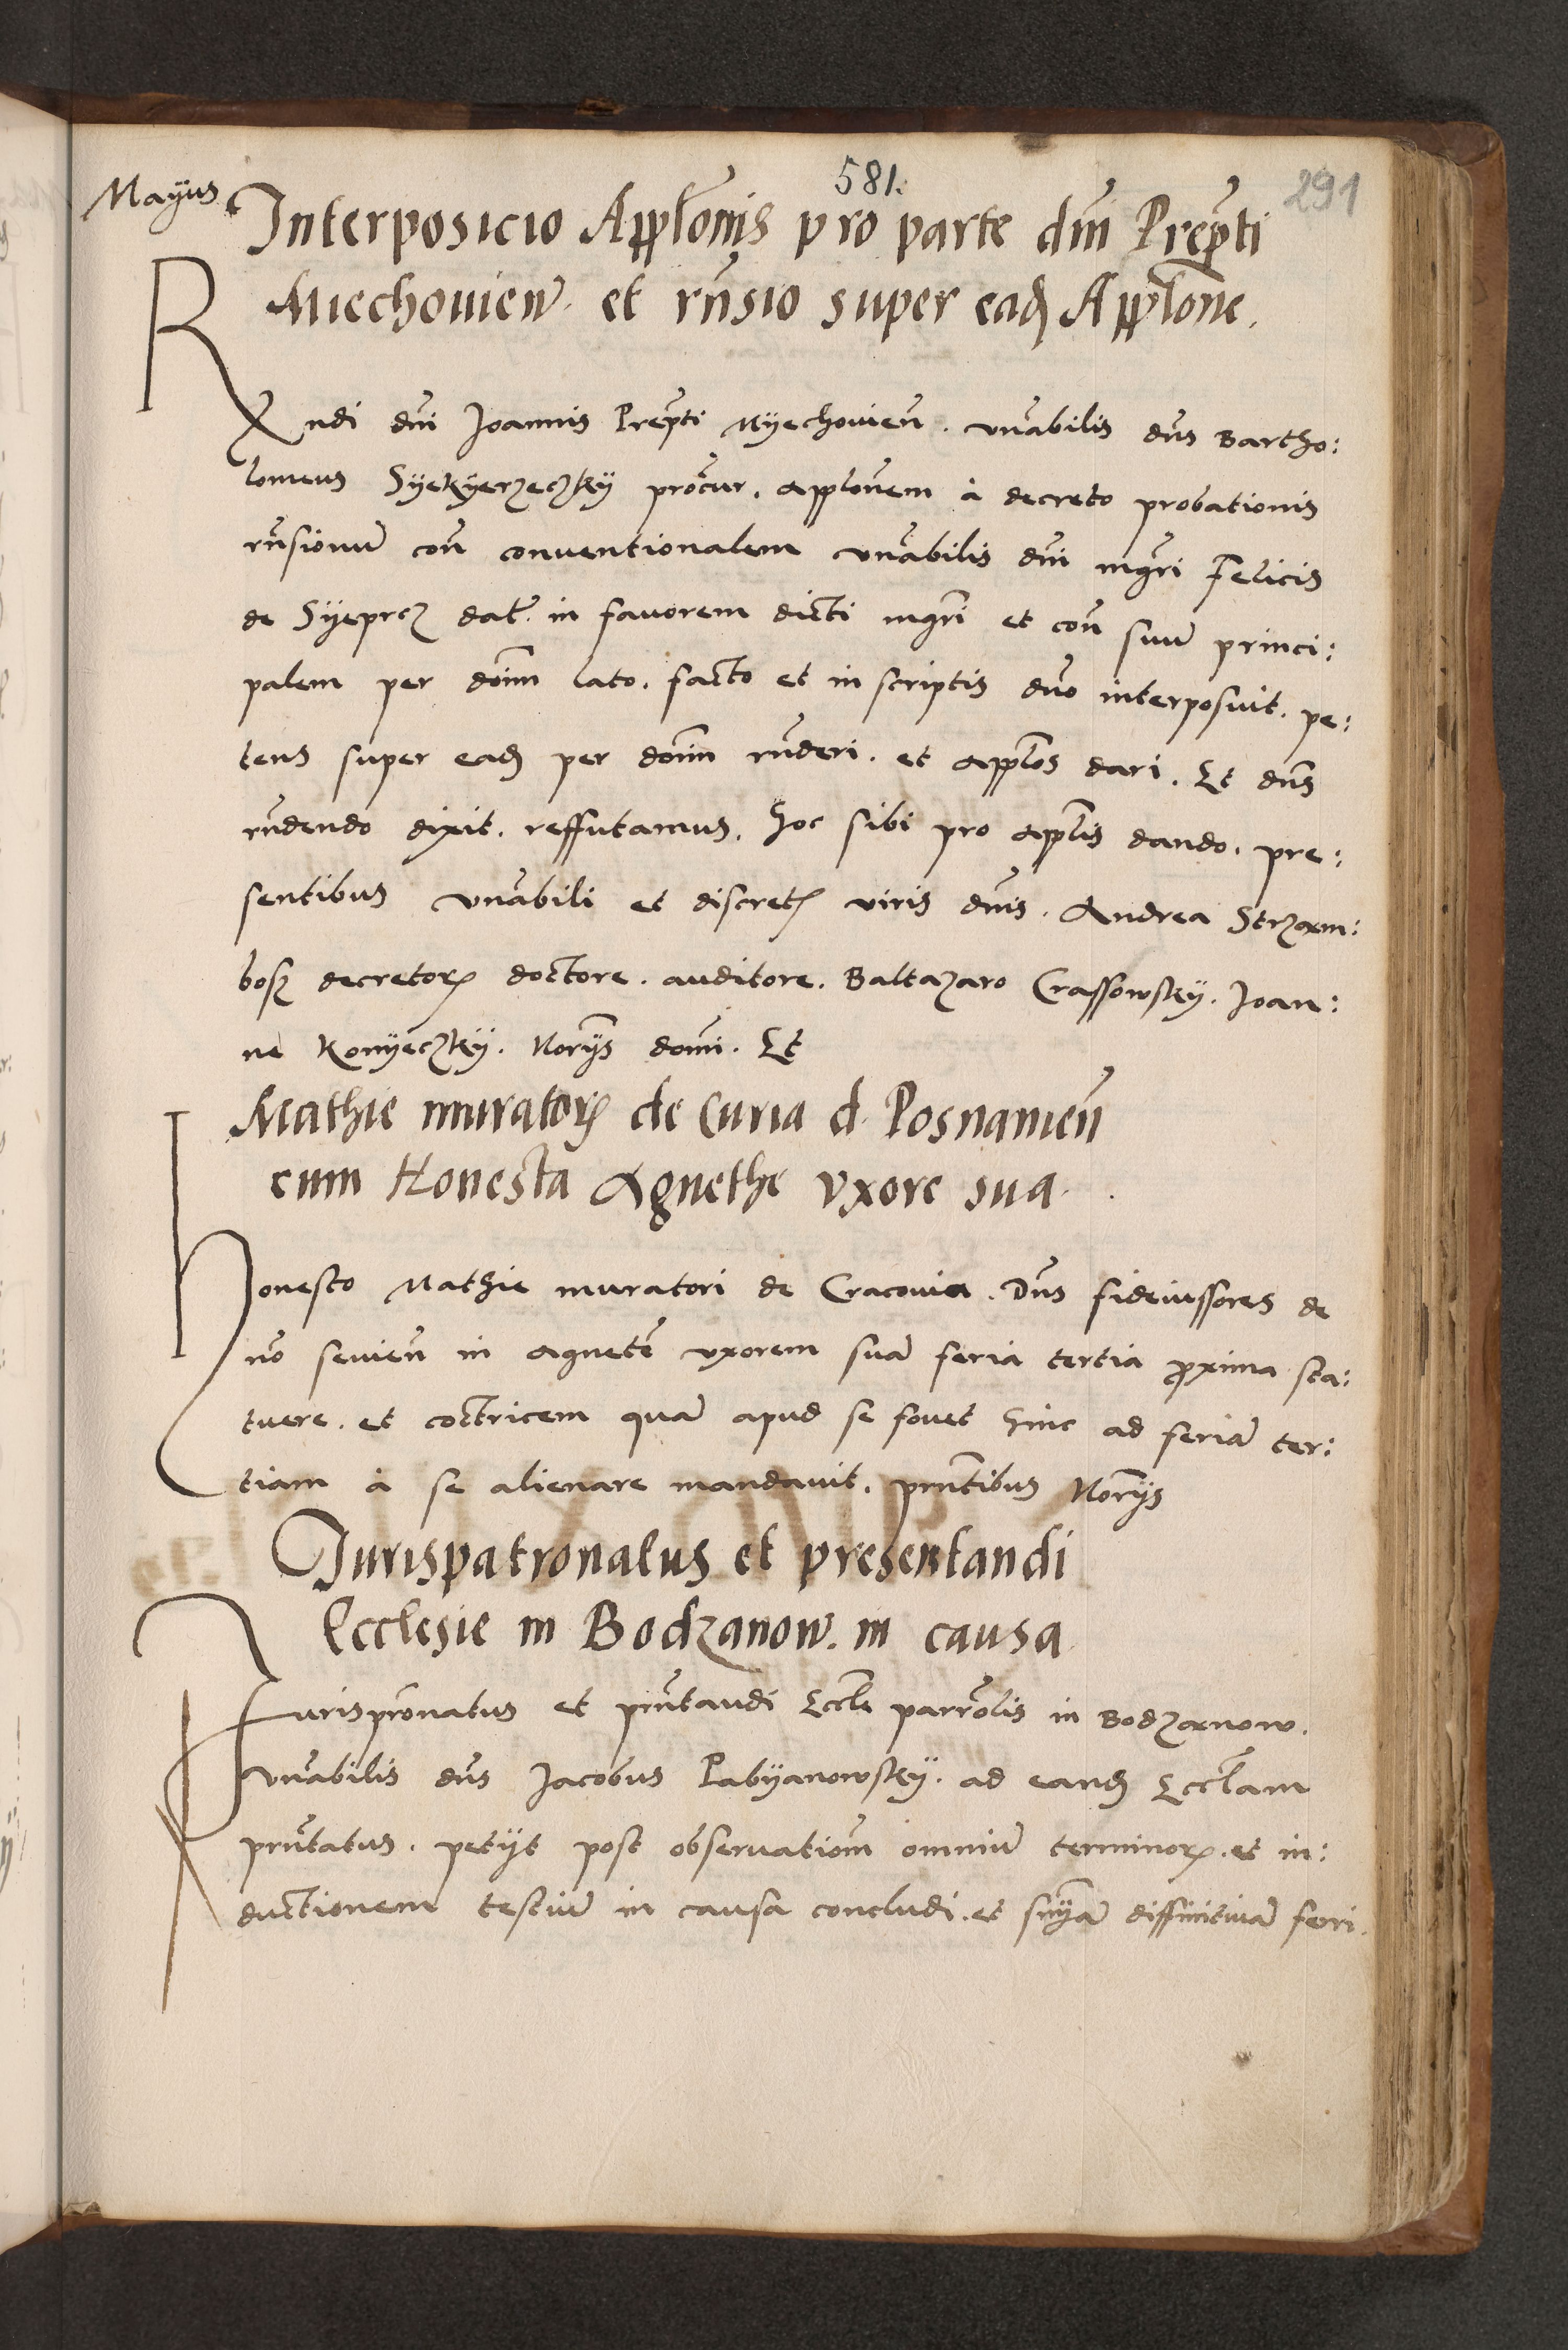 581.
291
Mayus
Interposicio Applõnis pro parte dñi Prepti
Miechouien̄. et rñsio super ead Applõne.
Rx̃ndi dñi Joannis Prepti Myechouieñ. vñabilis dñs Bartho:
lomeus Syekyerzeczky procur. applonem à decreto probationis
rñsionũ coñ conventionalem vñabilis dñi mgri Felicis
de Syeprcz dat. in fauorem dicti mgri et coñ suũ princi:
palem per doim lato. facto et in scriptis duo interposuit. pe:
tens super ead per doim rñderi. et applos dari. Et dñs
rñdendo dixit. reffutamus. hoc sibi pro aplis dando. pre:
sentibus vñabili et discret viris dñis. Andrea Strzam:
bosz decretor doctore. auditore. Baltazaro Crassowsky. Joan:
ne Konyeczky. Norijs domi. Et
Mathie murator de Curia d. Posnanieñ
cum Honesta Agnethe vxore sua.
Honesto Mathie muratori de Cracouia. Dñs fideiussores de
nõ seuieñ in Agnetẽ vxorem suã feria tertia proxima sta:
tuere. et coctricem quã apud se fouet hinc ad feriã ter:
tiam à se alienare mandauit. pñtibus Norijs
Jurispatronatus et presentandi
Ecclesie in Bodzanow. in causa
Jurisprõnatus et pñtandi Eccle parrolis in Bodzanow.
vñabilis dñs Jacobus Pabyanowsky. ad eand Ecclam
pñtatus. petijt post obseruationẽ omniũ terminor. et in:
ductionem testiũ in causa concludi. et snyã diffinitiuã ferri.